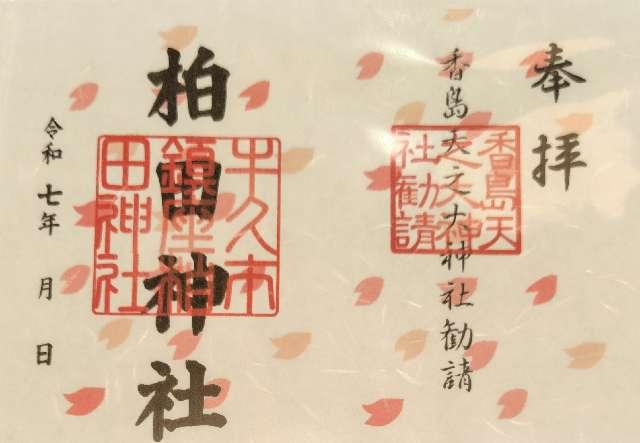 奉拝
香島天之大神社勧請
香島天
之大神
社勧請
柏田神社
牛久市
鎮座柏
田神社
令和七年 月 日